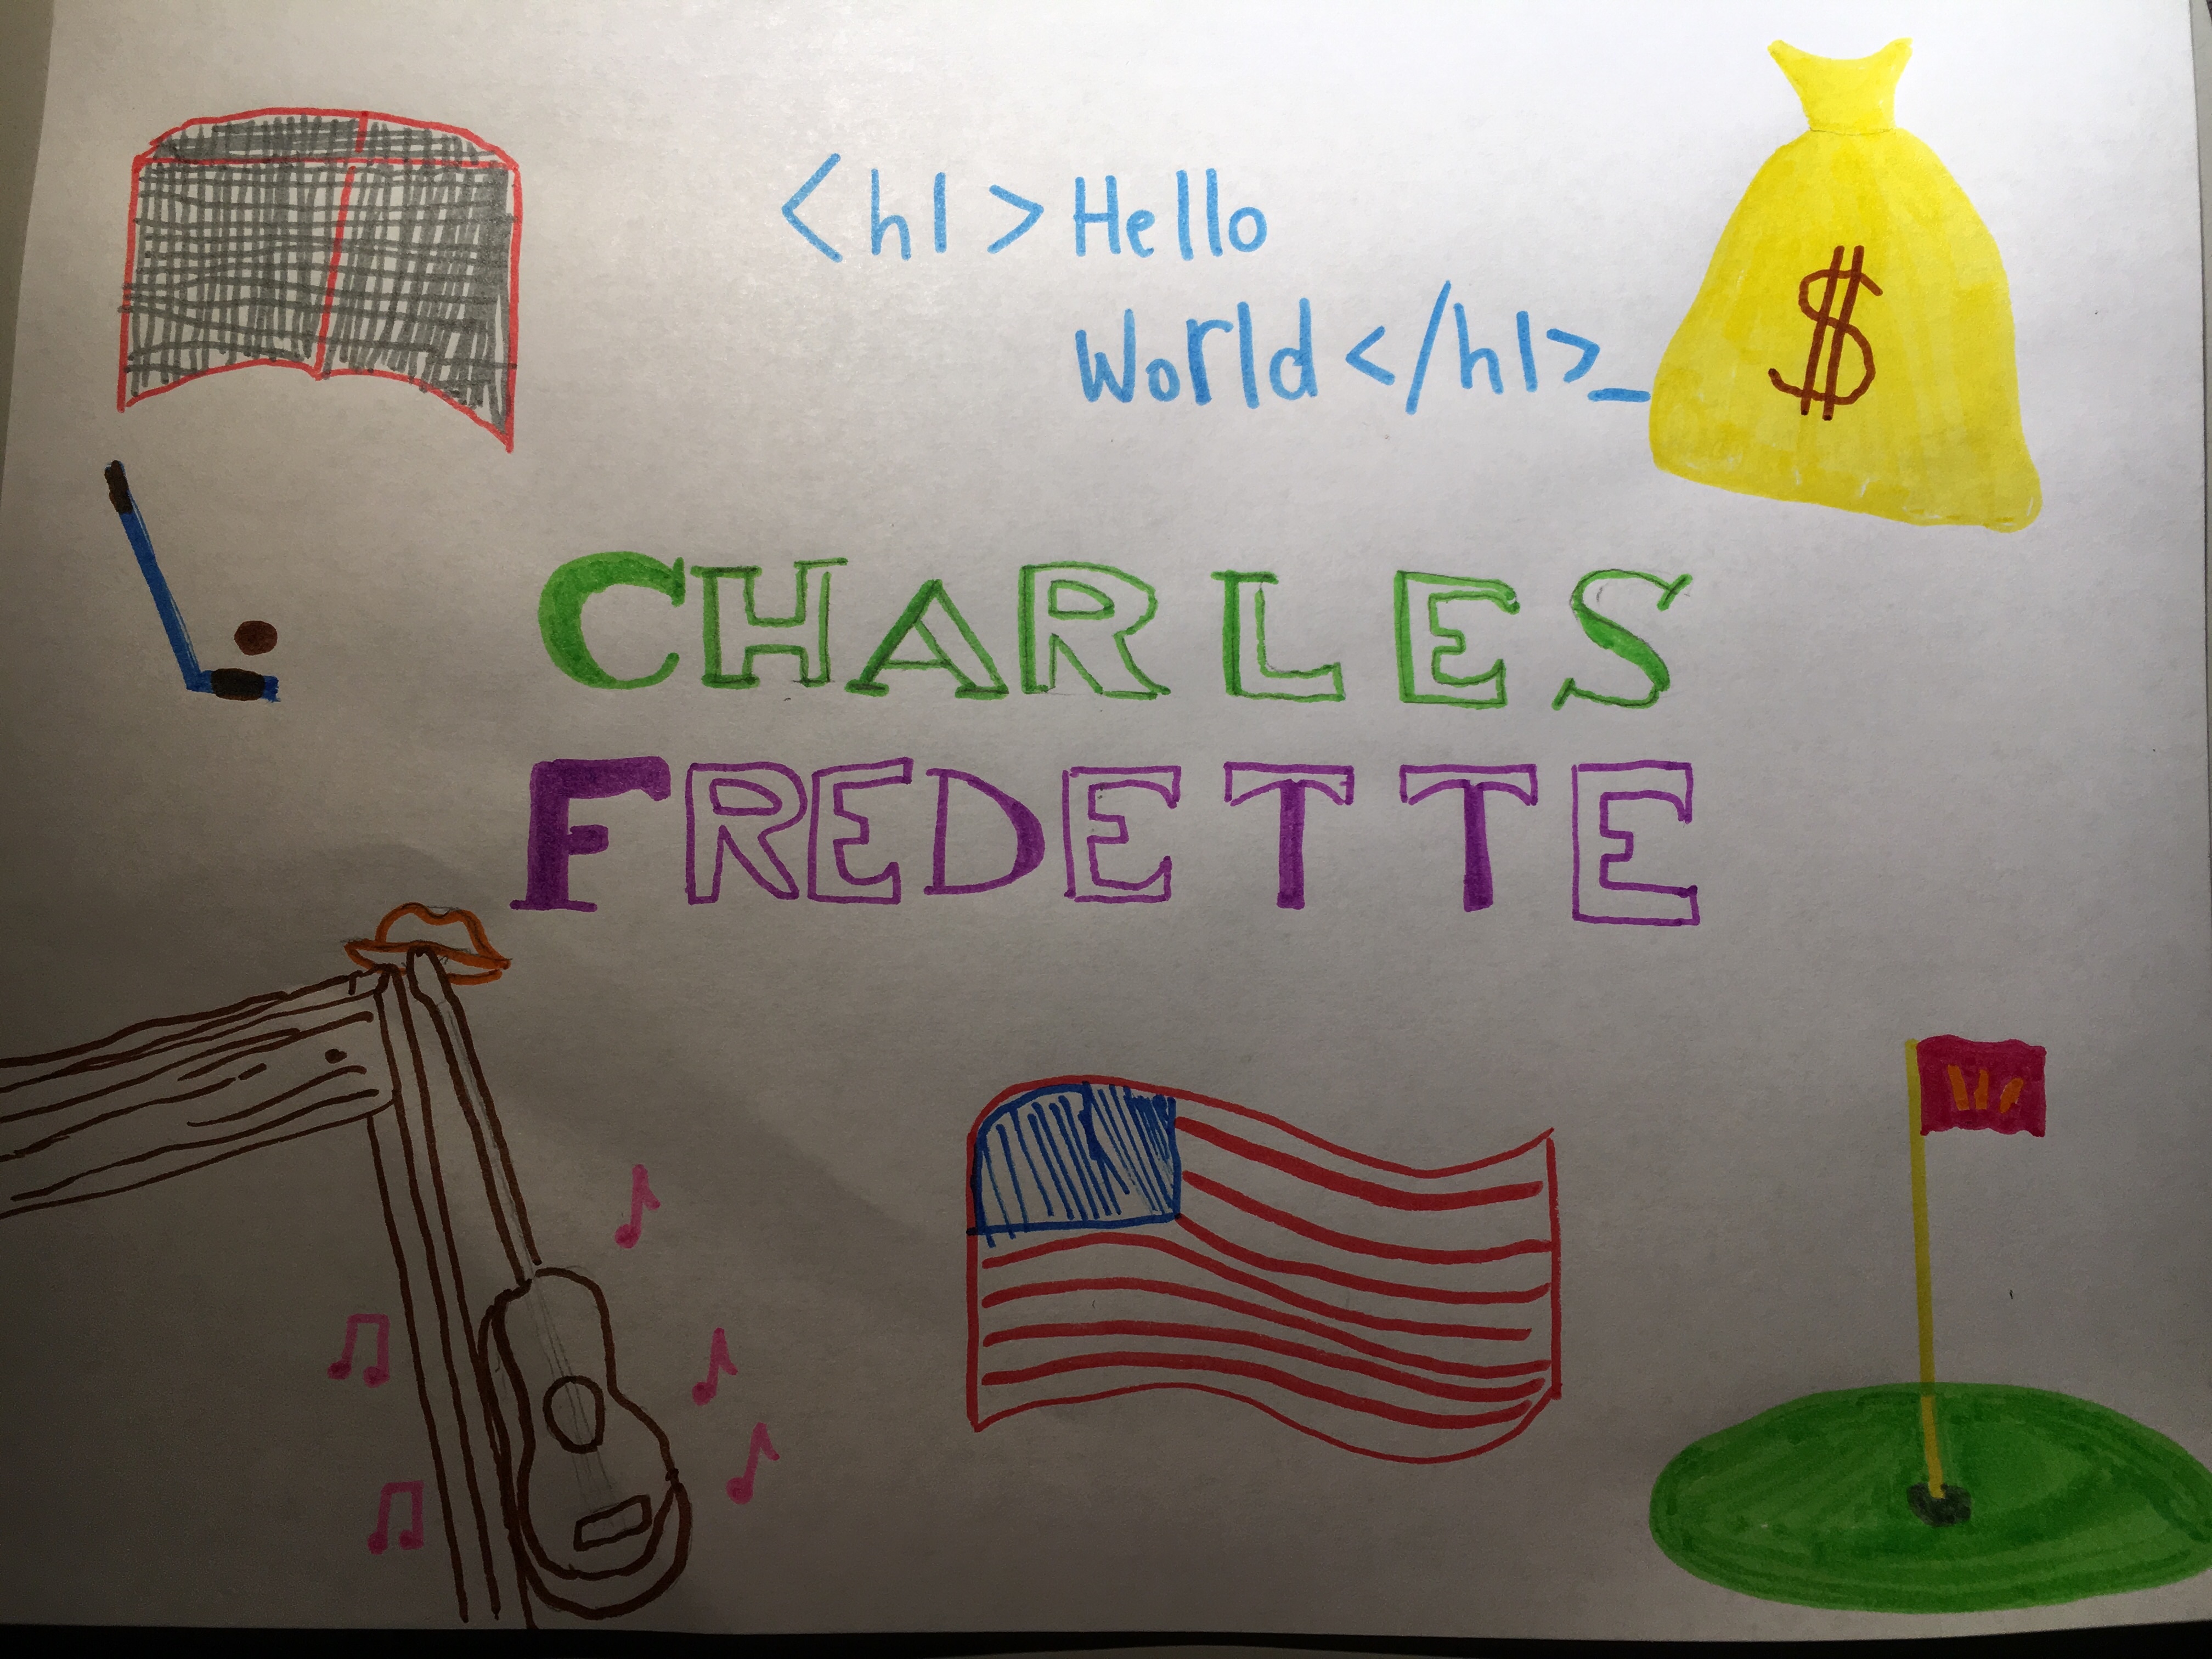 <h1>Hello
World</h1>_
$
CHARLES
FREDETTE